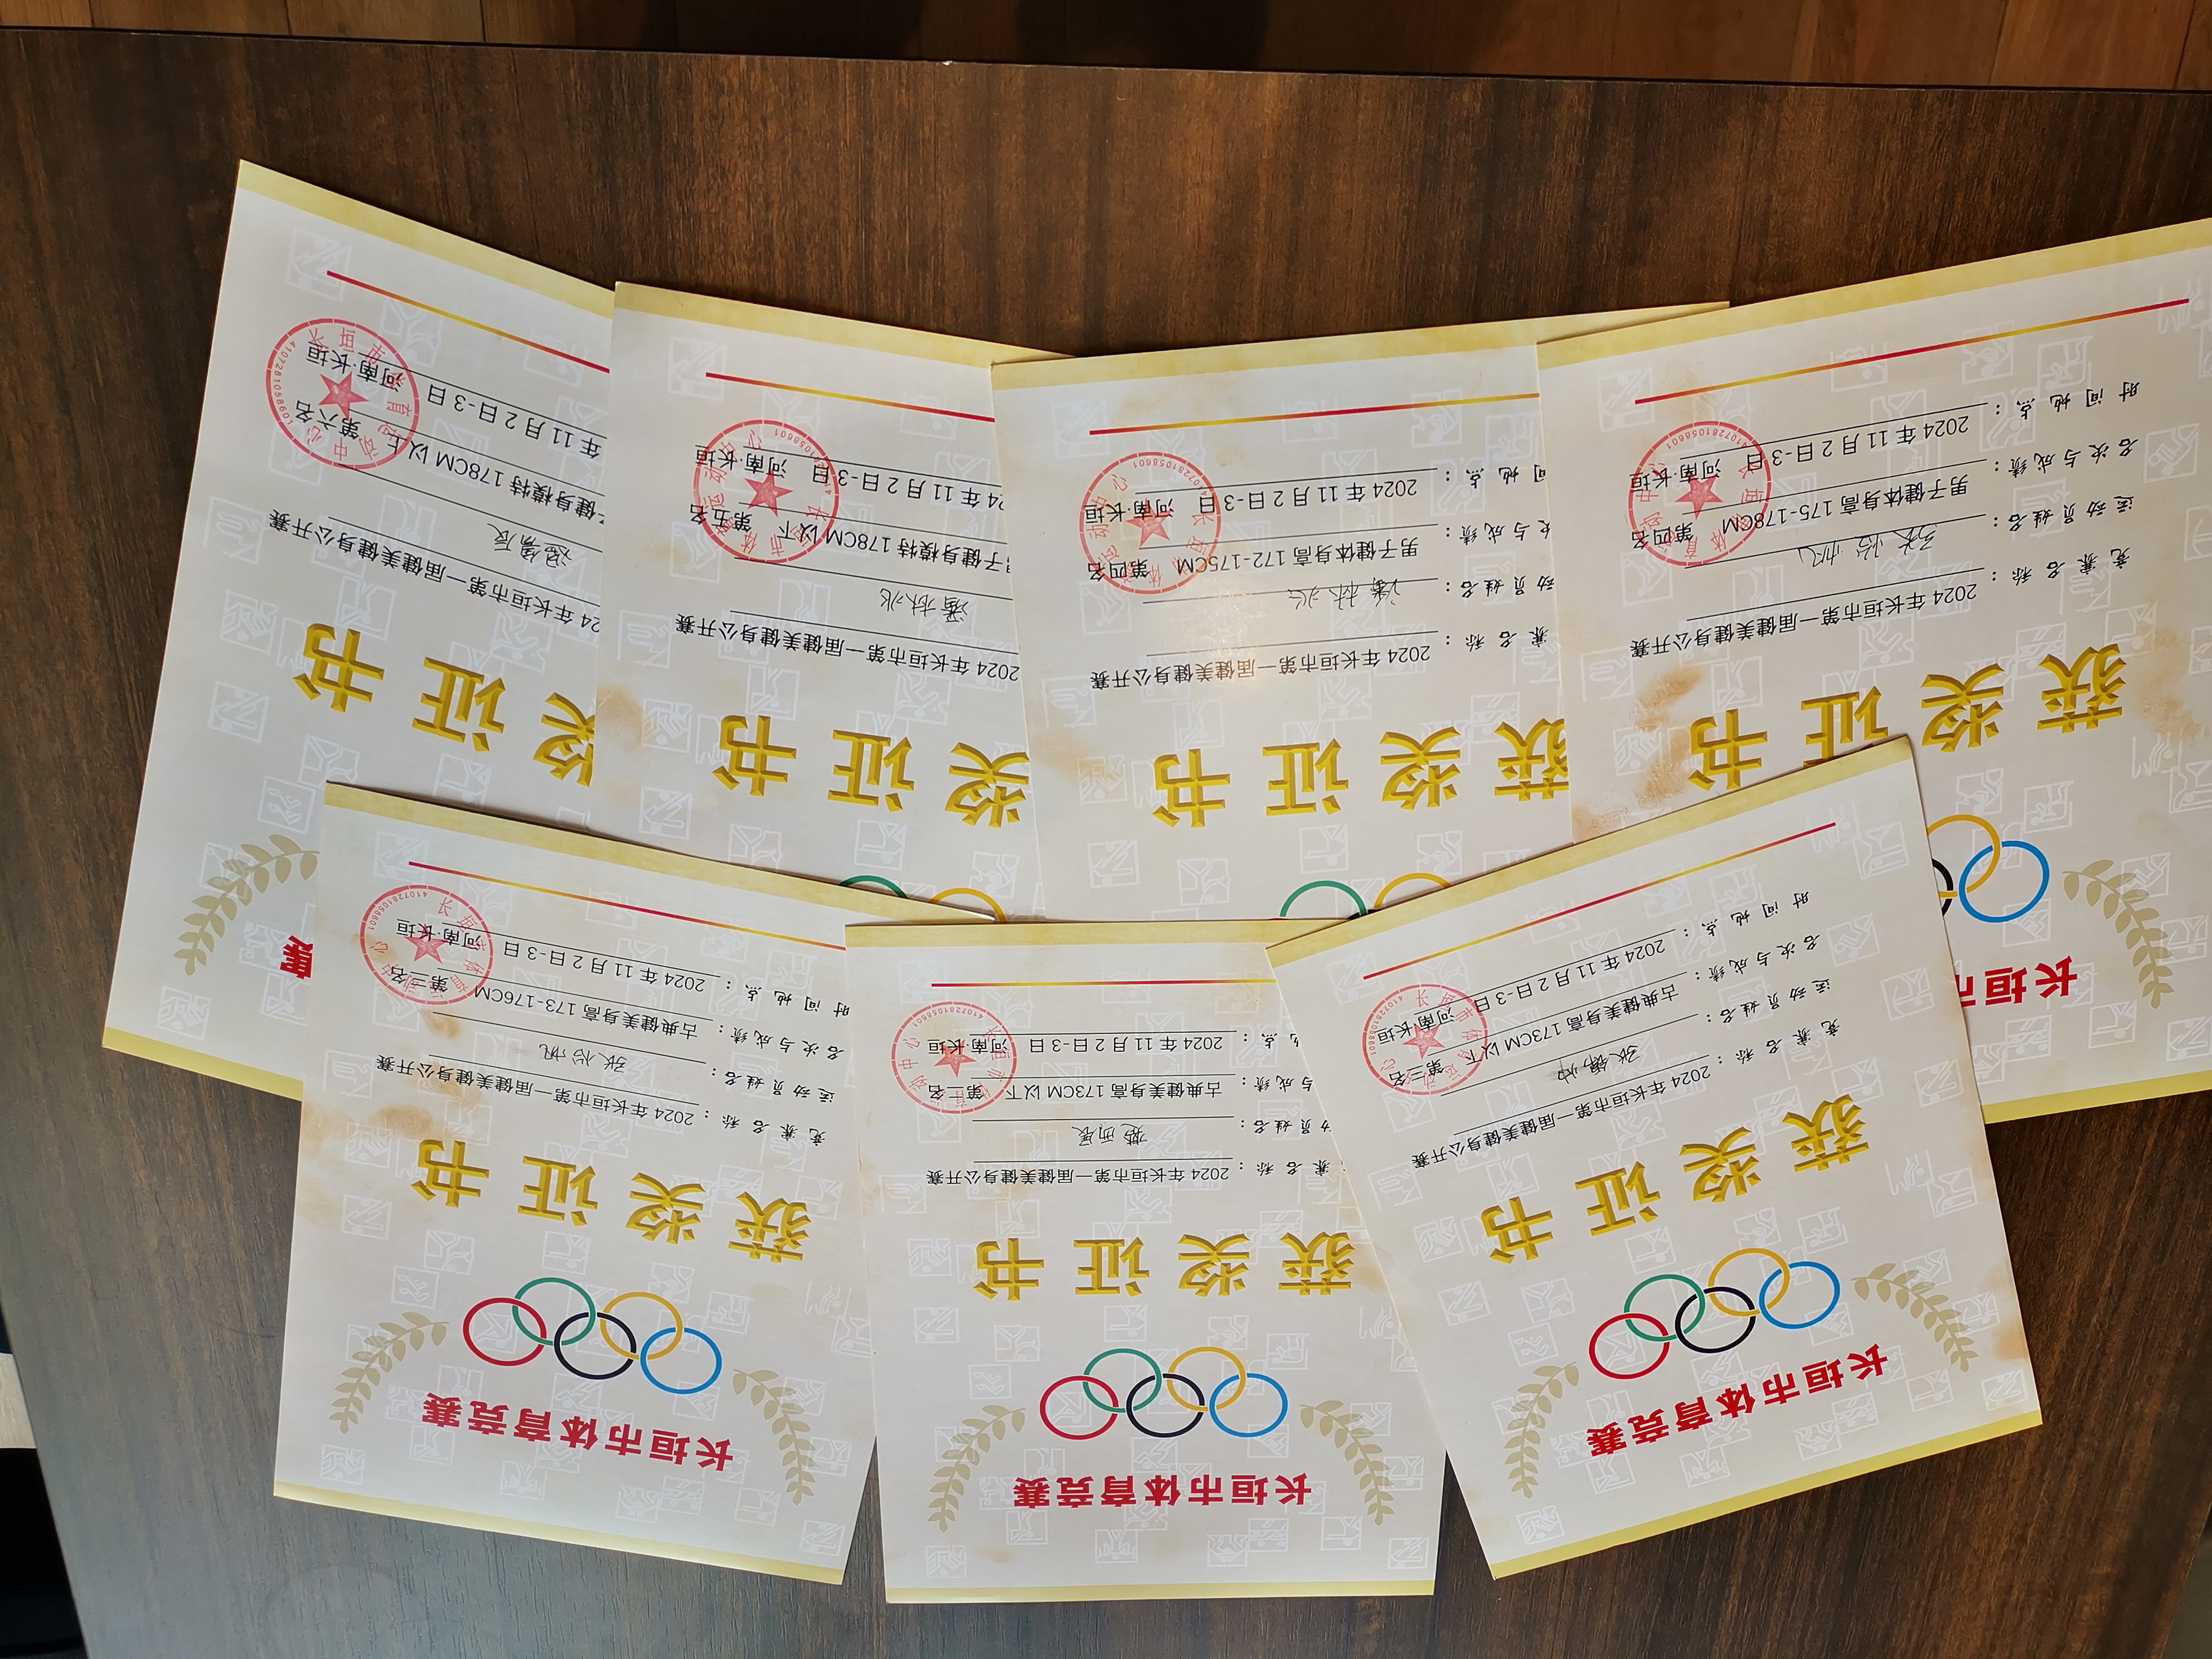 长垣市体育竞赛
获奖证书
竞赛名称：2024年长垣市第一届健美健身公开赛
运动员姓名：张
名次与成绩：古典健美身高173CM以下 第三名
时间地点：2024年11月2日-3日 河南·长垣
长垣市体育竞赛
获奖证书
赛名称：2024年长垣市第一届健美健身公开赛
员姓名：
与成绩：古典健美身高173CM以下 第二名
点：2024年11月2日-3日 河南·长垣
长垣市体育竞赛
获奖证书
竞赛名称：2024年长垣市第一届健美健身公开赛
运动员姓名：张怡帆
名次与成绩：古典健美身高173-176CM 第三名
时间地点：2024年11月2日-3日 河南·长垣
长垣市
获奖证书
竞赛名称：2024年长垣市第一届健美健身公开赛
运动员姓名：张怡帆
名次与成绩：男子健体身高175-178CM 第四名
时间地点：2024年11月2日-3日 河南·长垣
获奖证书
赛名称：2024年长垣市第一届健美健身公开赛
动员姓名：潘林兆
与成绩：男子健体身高172-175CM 第四名
间地点：2024年11月2日-3日 河南·长垣
奖证书
2024年长垣市第一届健美健身公开赛
潘林兆
男子健身模特178CM以下 第五名
24年11月2日-3日 河南·长垣
赛
奖证书
24年长垣市第一届健美健身公开赛
健身模特178CM以上 第六名
年11月2日-3日 河南·长垣